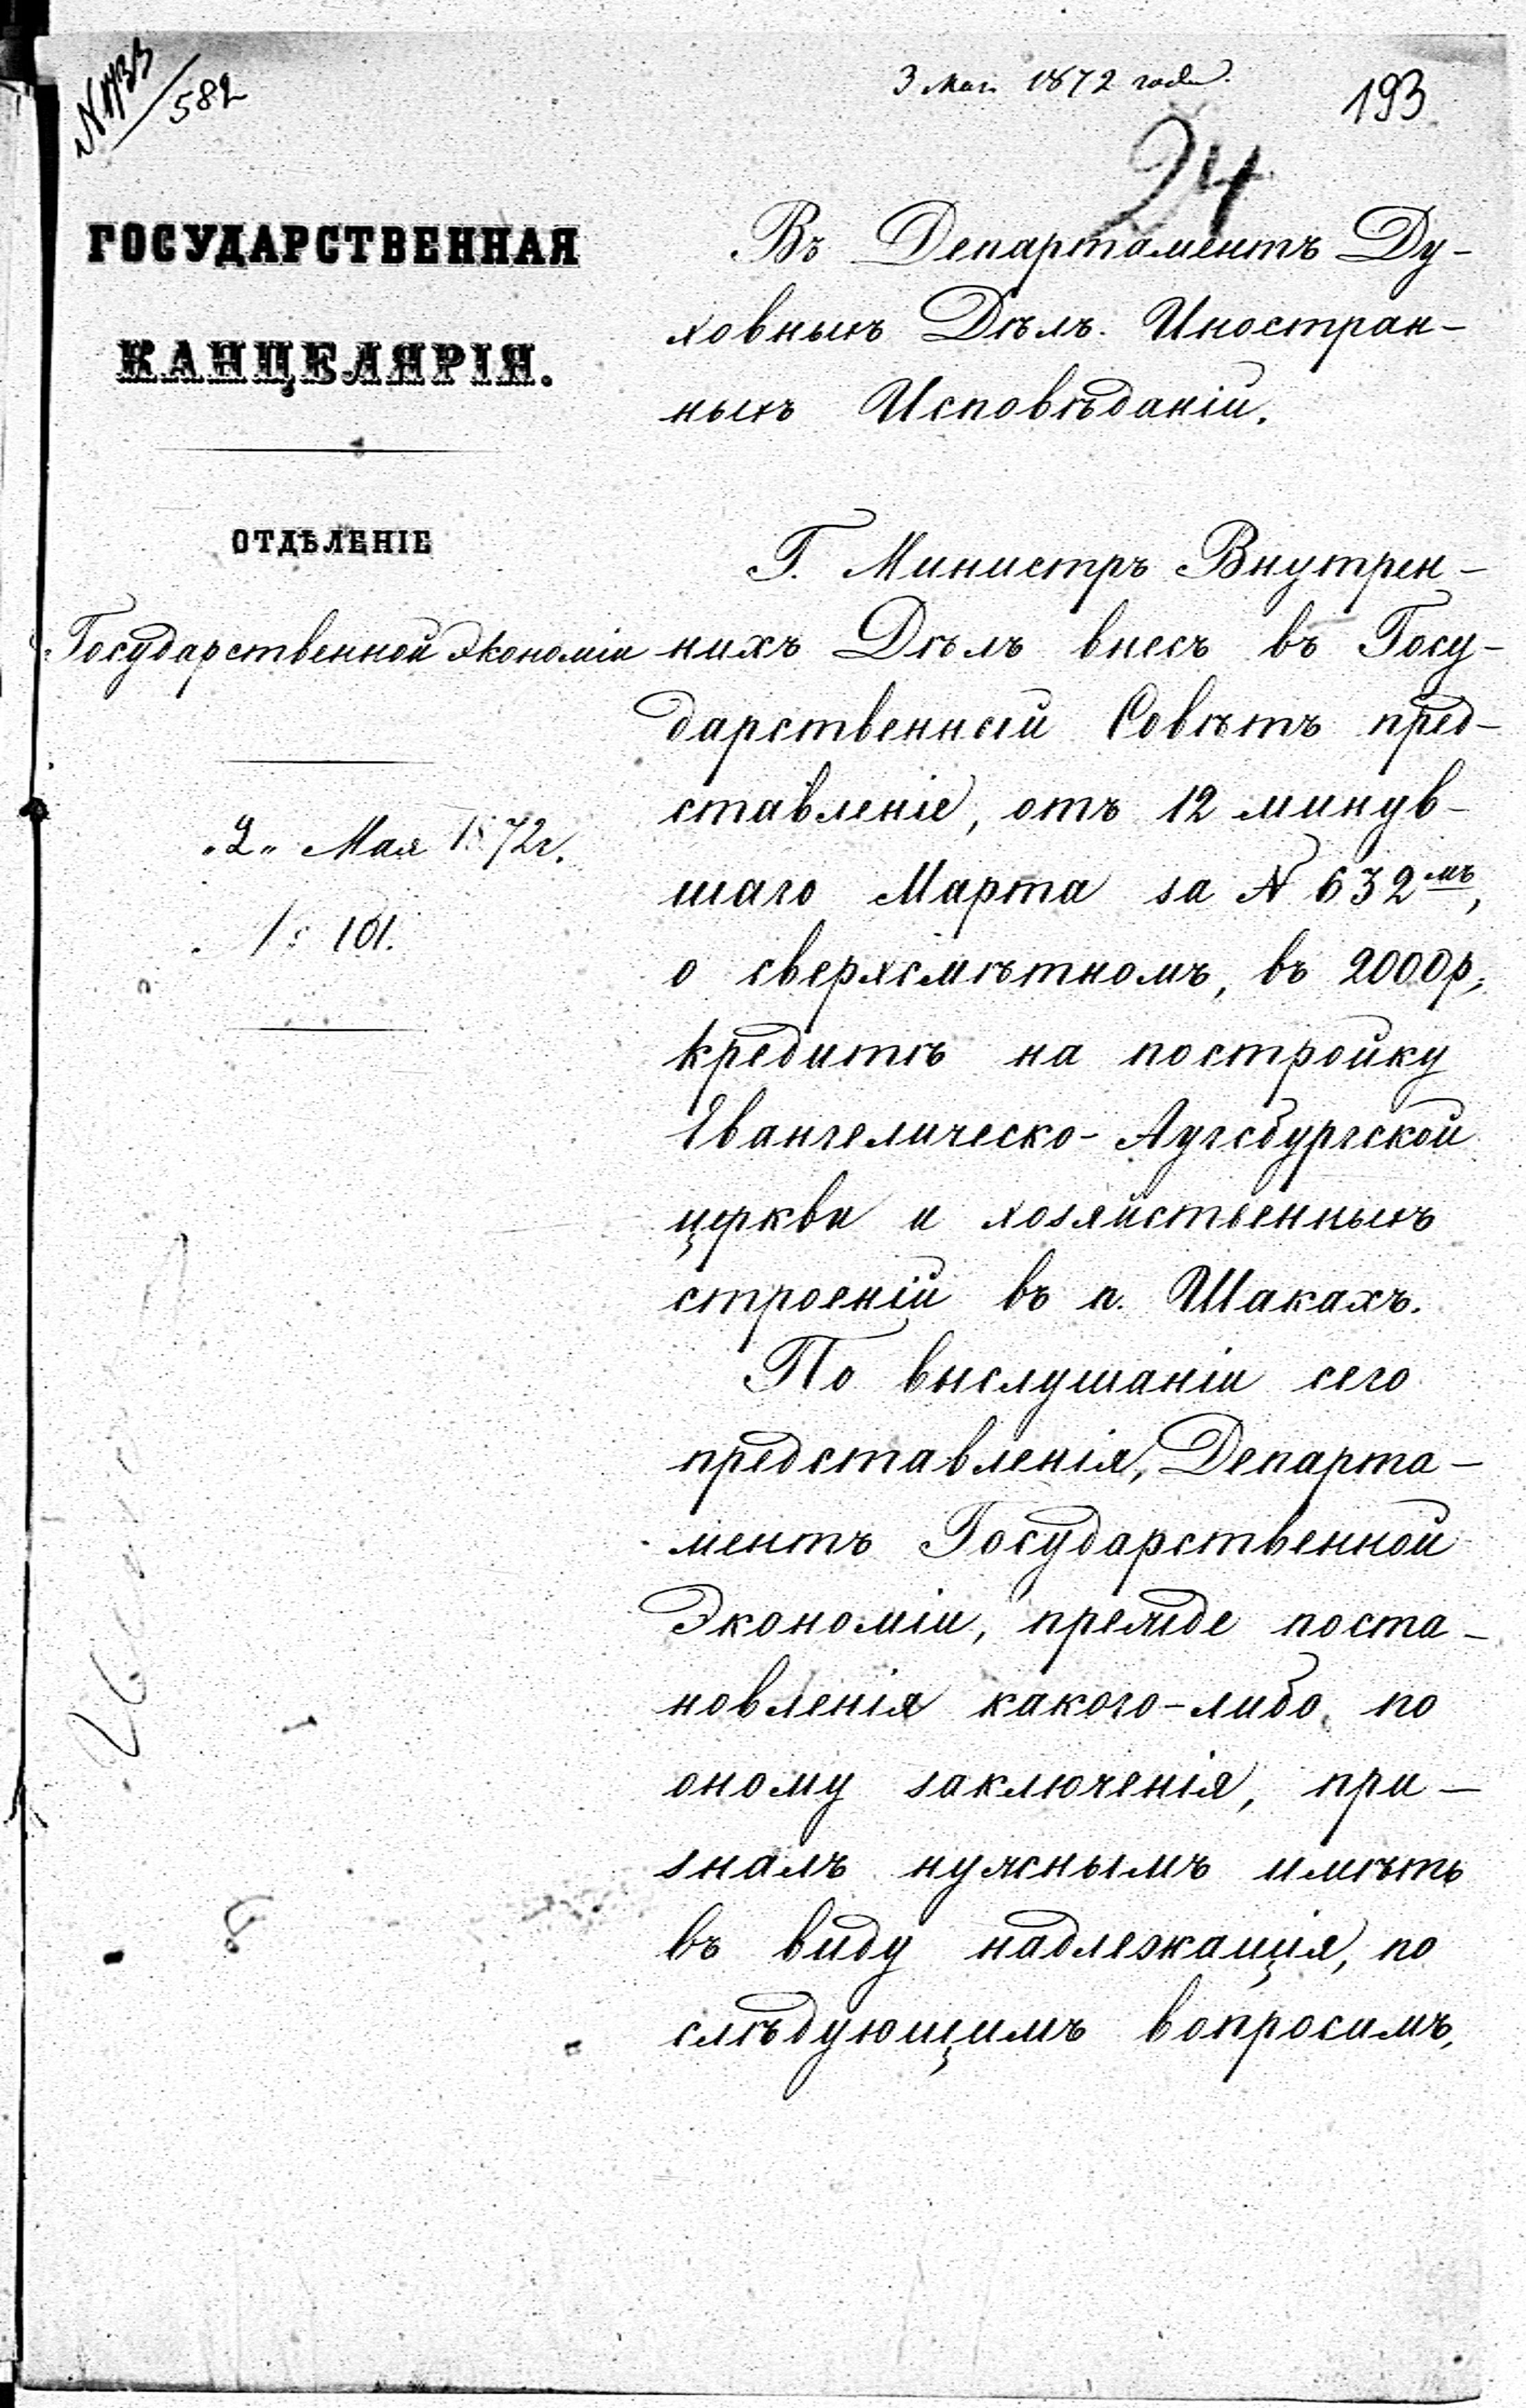 3 Мая 1872 года.
193
582
24
ГОСУДАРСТВЕННАЯ
КАНЦЕЛЯРІЯ.
ОТДѢЛЕНІЕ
Государственной Экономіи
„2„ Мая 1872 г.
101.
Въ Департаментъ Ду-
ховныхъ Дѣлъ Иностран-
ныхъ Исповѣданій.
Г. Министръ Внутрен-
нихъ Дѣлъ внесъ въ Госу-
дарственный Совѣтъ пред-
ставленіе, отъ 12 минув-
шаго Марта за № 632мъ,
о сверхсмѣтномъ, въ 2000 р.,
кредитѣ на постройку
Евангелическо-Аугсбургской
церкви и хозяйственныхъ
строеній въ п. Шакахъ.
По выслушаніи сего
представленія, Департа-
ментъ Государственной
Экономіи, прежде поста-
новленія какого-либо по
оному заключенія, при-
зналъ нужнымъ имѣть
въ виду надлежащія, по
слѣдующимъ вопросамъ,